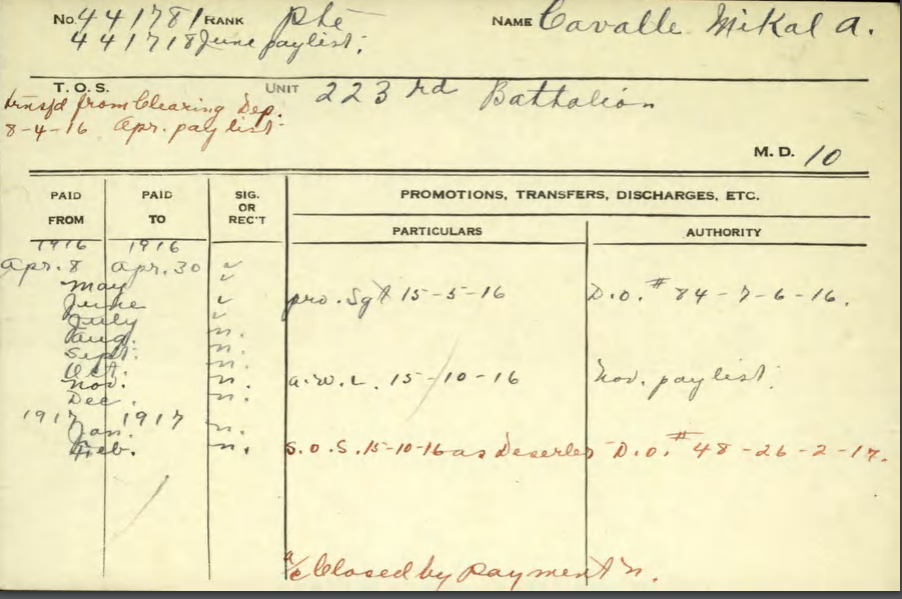 No. 441781 RANK Pte NAME Cavalle Mikal A.
441718 June paylist.
T.O.S. UNIT 223rd Battalion
trnsfd from Clearing Dep.
8-4-16 Apr. pay list.
M. D. 10
PAID FROM PAID TO SIG. OR REC'T PROMOTIONS, TRANSFERS, DISCHARGES, ETC.
PARTICULARS AUTHORITY
1916 1916
Apr. 8 Apr. 30 ✓
May ✓
June ✓ pro. Sgt 15-5-16 D.O. # 84-7-6-16.
July ✓
Aug. n.
Sept. n.
Oct. n.
Nov. n. a.w.l. 15-10-16 Nov. paylist.
Dec. n.
1917 1917
Jan. n.
Feb. n. S.O.S. 15-10-16 as Deserter D.O. # 48-26-2-17.
a/c Closed by payment n.